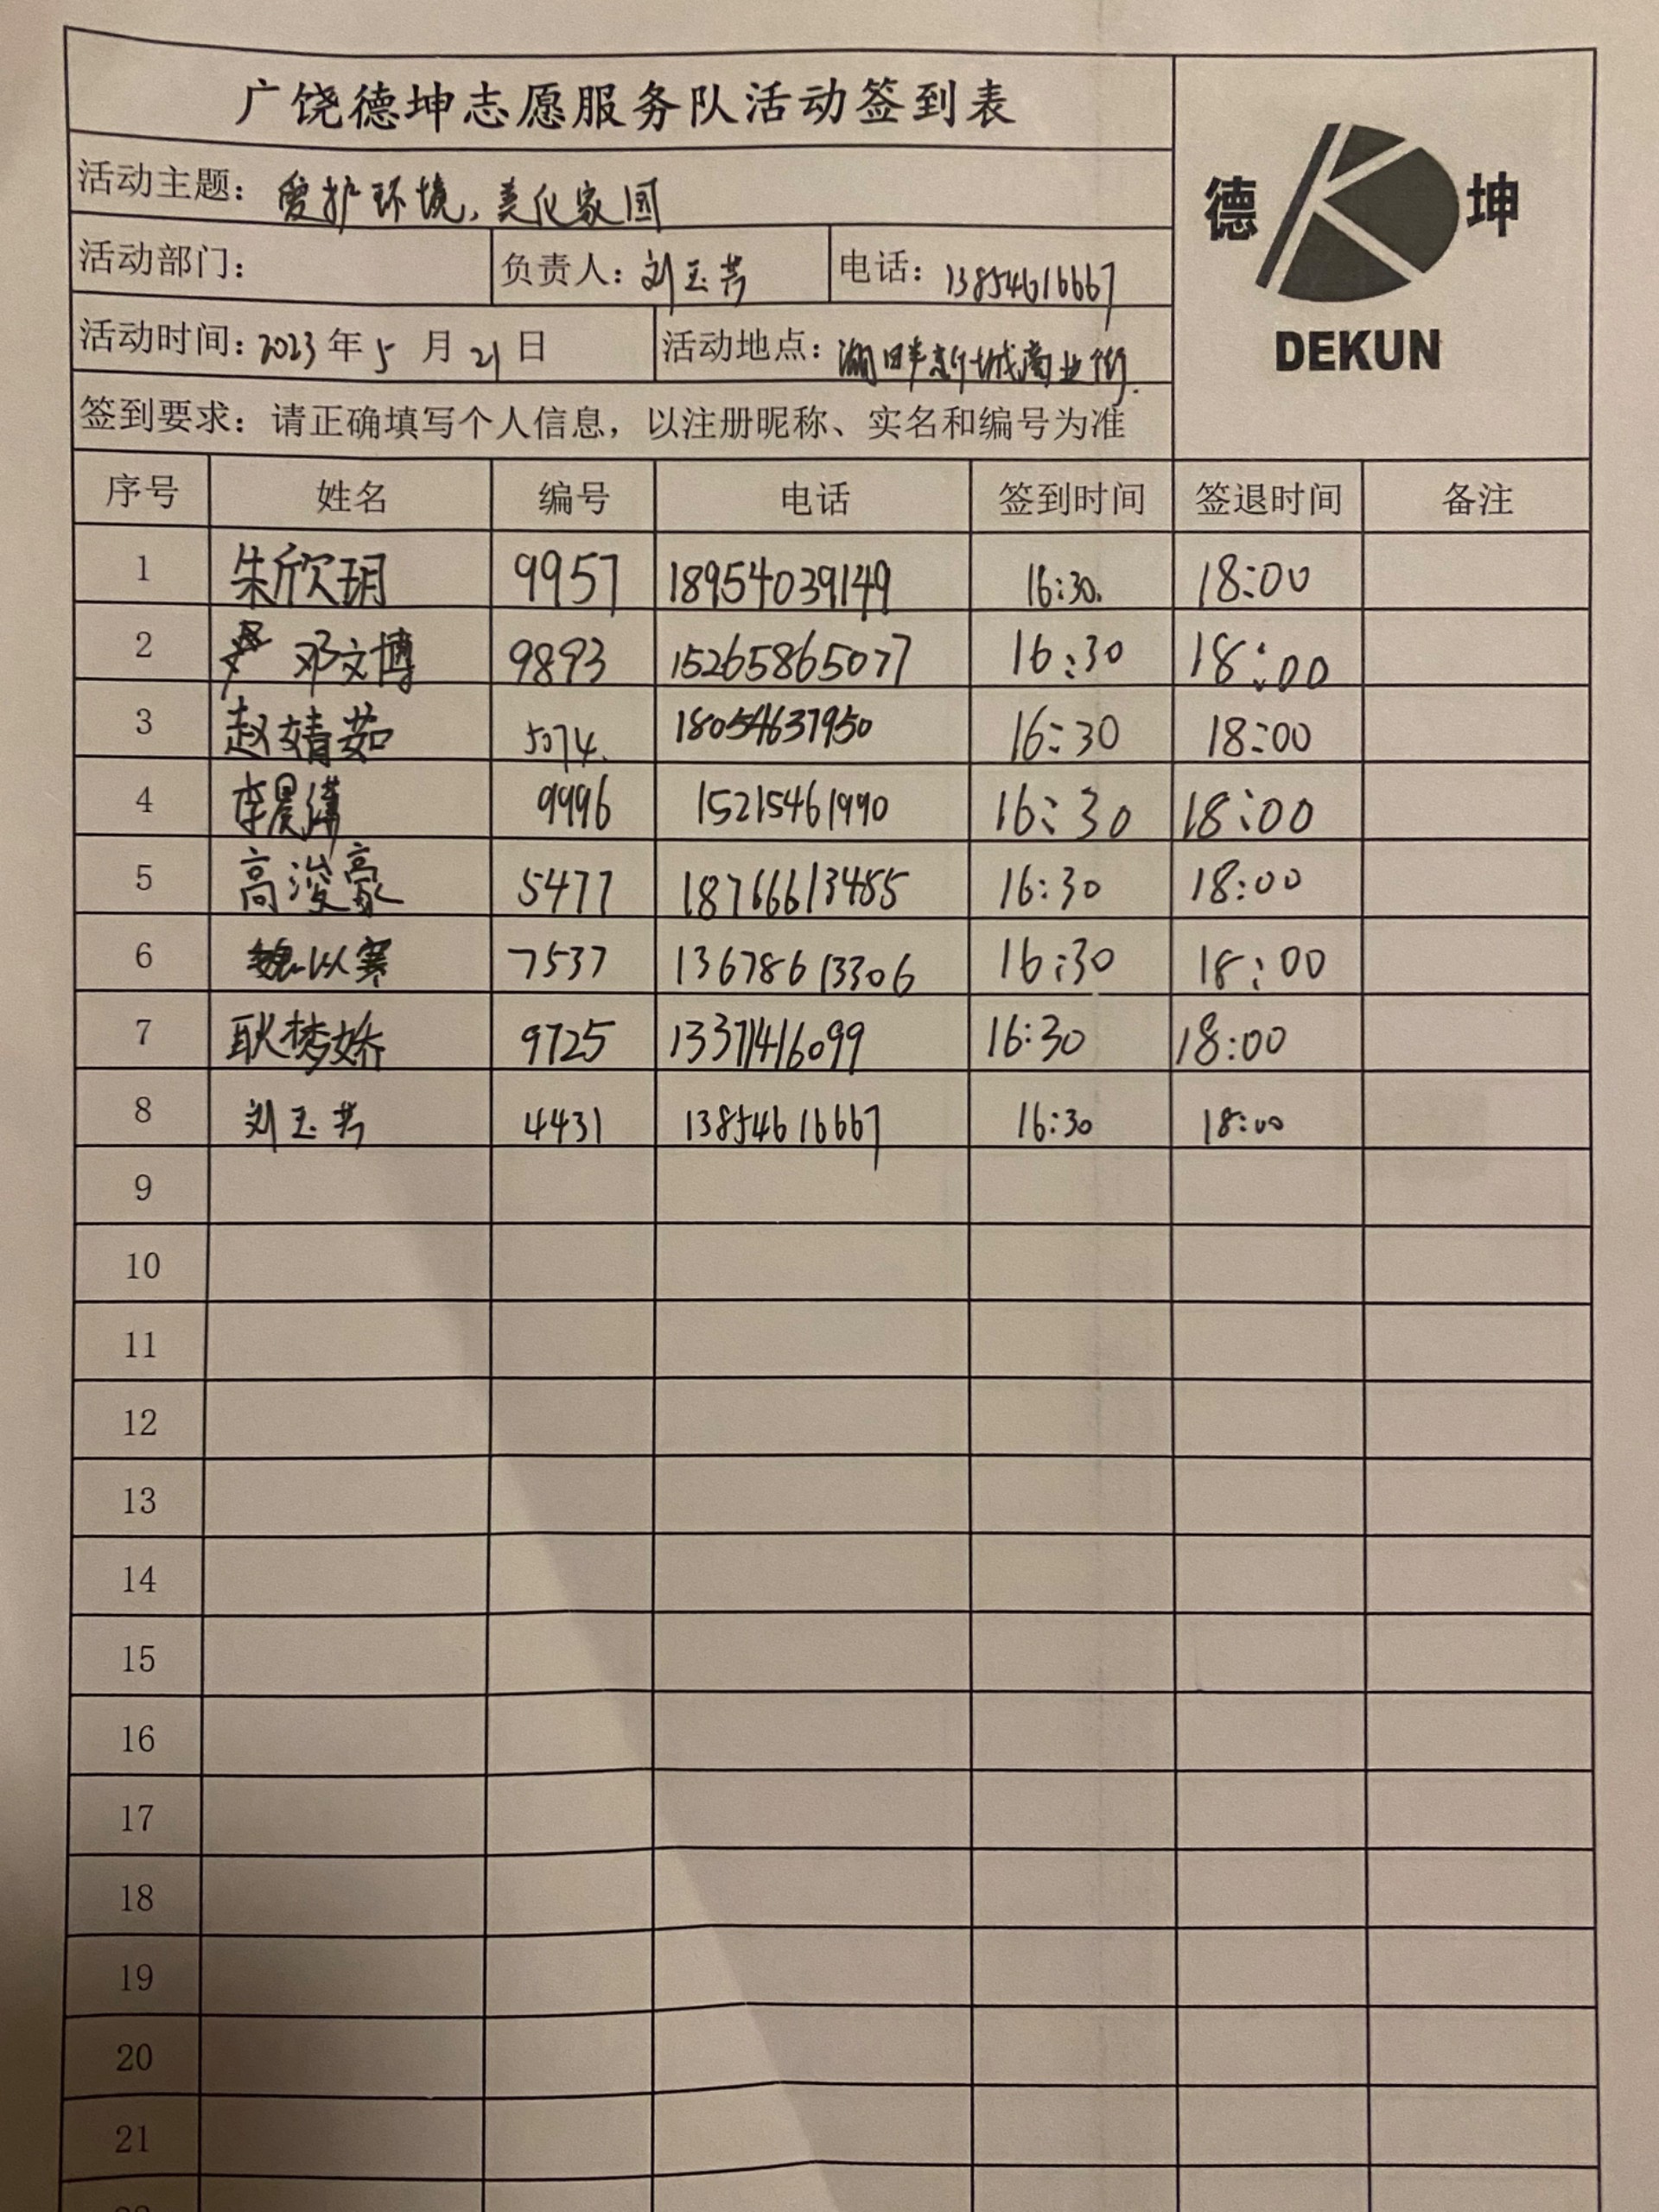 广饶德坤志愿服务队活动签到表
活动主题：爱护环境，美化家园
德 坤
活动部门： 负责人：刘玉芳 电话：13854616667
活动时间：2023年5月21日 活动地点：湖畔新城商业街.
DEKUN
签到要求：请正确填写个人信息，以注册昵称、实名和编号为准
序号 姓名 编号 电话 签到时间 签退时间 备注
1 朱欣玥 9957 18954039149 16:30. 18:00
2 邓文博 9893 15265865077 16:30 18:00
3 赵婧茹 5074. 18054637950 16:30 18:00
4 李晨 9996 15215461990 16:30 18:00
5 高浚豪 5477 18766613485 16:30 18:00
6 魏以赛 7537 13678613306 16:30 18:00
7 耿梦娇 9725 13371416099 16:30 18:00
8 刘玉芳 4431 13854616667 16:30 18:00
9
10
11
12
13
14
15
16
17
18
19
20
21